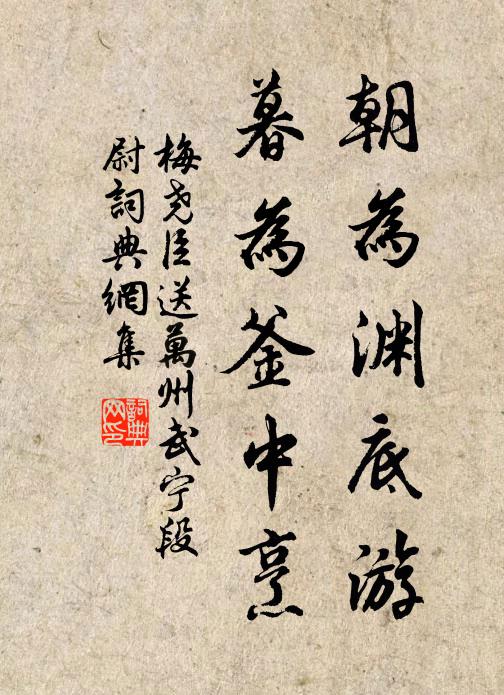 朝為渊底游
暮為釜中烹
梅尧臣送萬州武宁段
尉詞典網集
詞典
网印